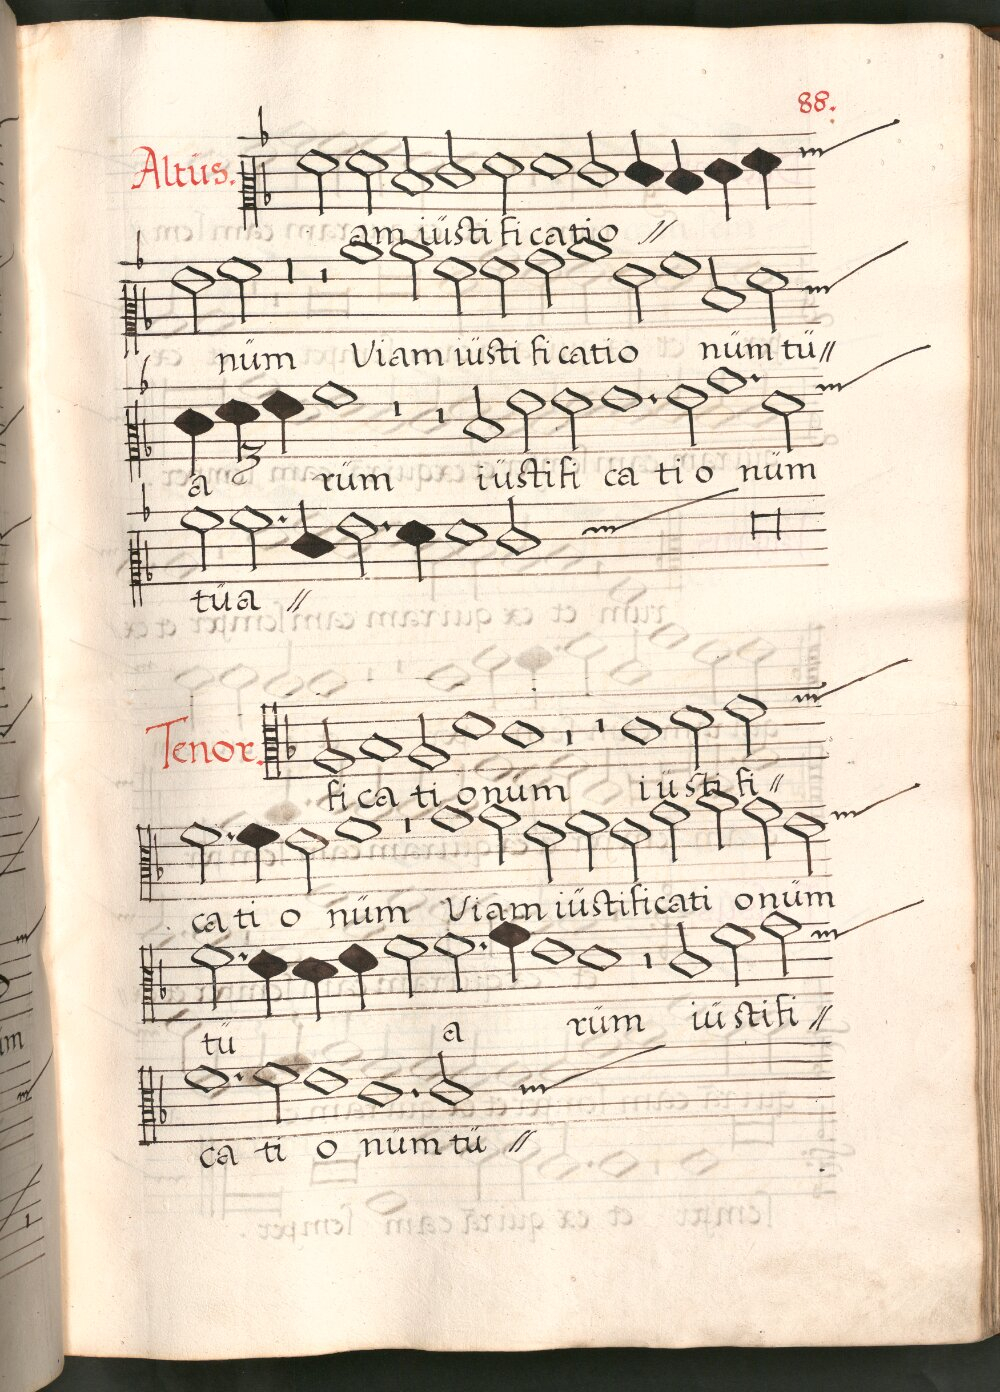 88.
Altüs.
am iüstificatio //
nüm Viam iüstificatio nüm tü //
3
a rüm iüstifi ca ti o nüm
tüa //
Tenor.
fi ca ti onüm iüstifi //
ca ti o nüm Viam iüstificati onüm
tü a rüm iüstifi //
ca ti o nüm tü //